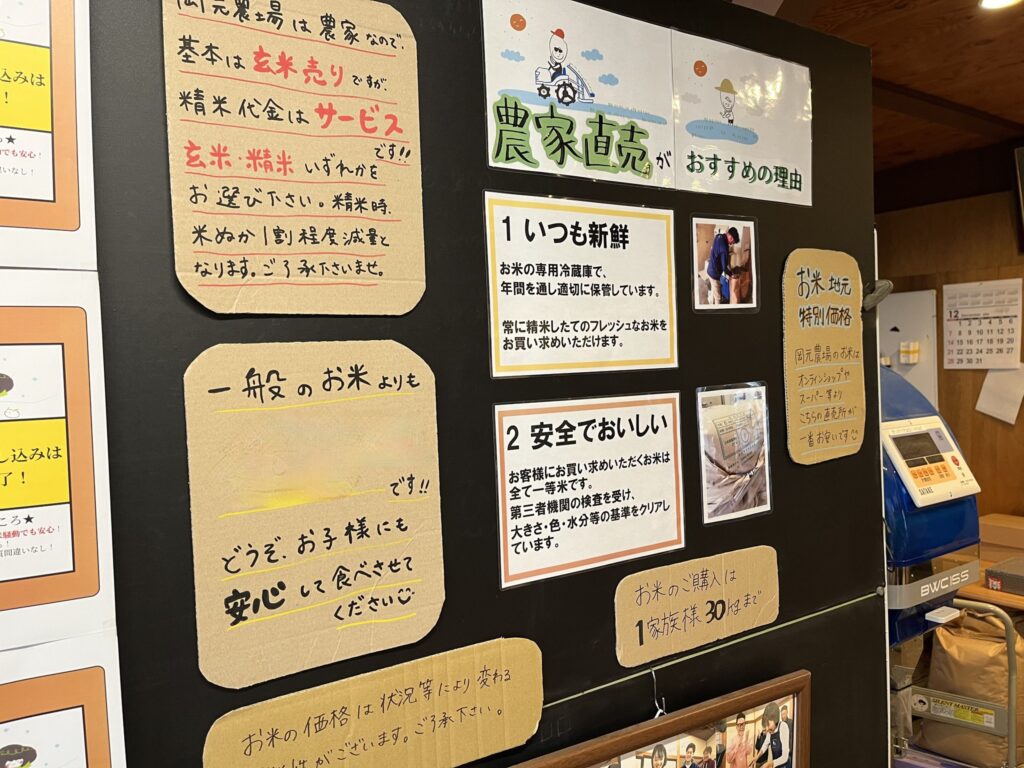 岡元農場は農家なので、
基本は玄米売りですが、
精米代金はサービス
です!!
玄米・精米いずれかを
お選び下さい。精米時、
米ぬか1割程度減量と
なります。ご了承下さいませ。
一般のお米よりも
です!!
どうぞ、お子様にも
安心して食べさせて
ください
お米の価格は状況等により変わる
がございます。ご了承下さい。
農家直売が
おすすめの理由
1 いつも新鮮
お米の専用冷蔵庫で、
年間を通し適切に保管しています。
常に精米したてのフレッシュなお米を
お買い求めいただけます。
2 安全でおいしい
お客様にお買い求めいただくお米は
全て一等米です。
第三者機関の検査を受け、
大きさ・色・水分等の基準をクリアし
ています。
お米のご購入は
1家族様30kgまで
お米地元
特別価格
岡元農場のお米は
オンラインショップや
スーパー等より
こちらの直売所が
一番お安いです
込みは
!
でも安心!
いなし!
し込みは
了!
ころ★
騒動でも安心!
質間違いなし!
12
1 2 3 4 5 6
7 8 9 10 11 12 13
14 15 16 17 18 19 20
21 22 23 24 25 26 27
28 29 30 31
SATAKE
BWC15S
SILENT MASTER